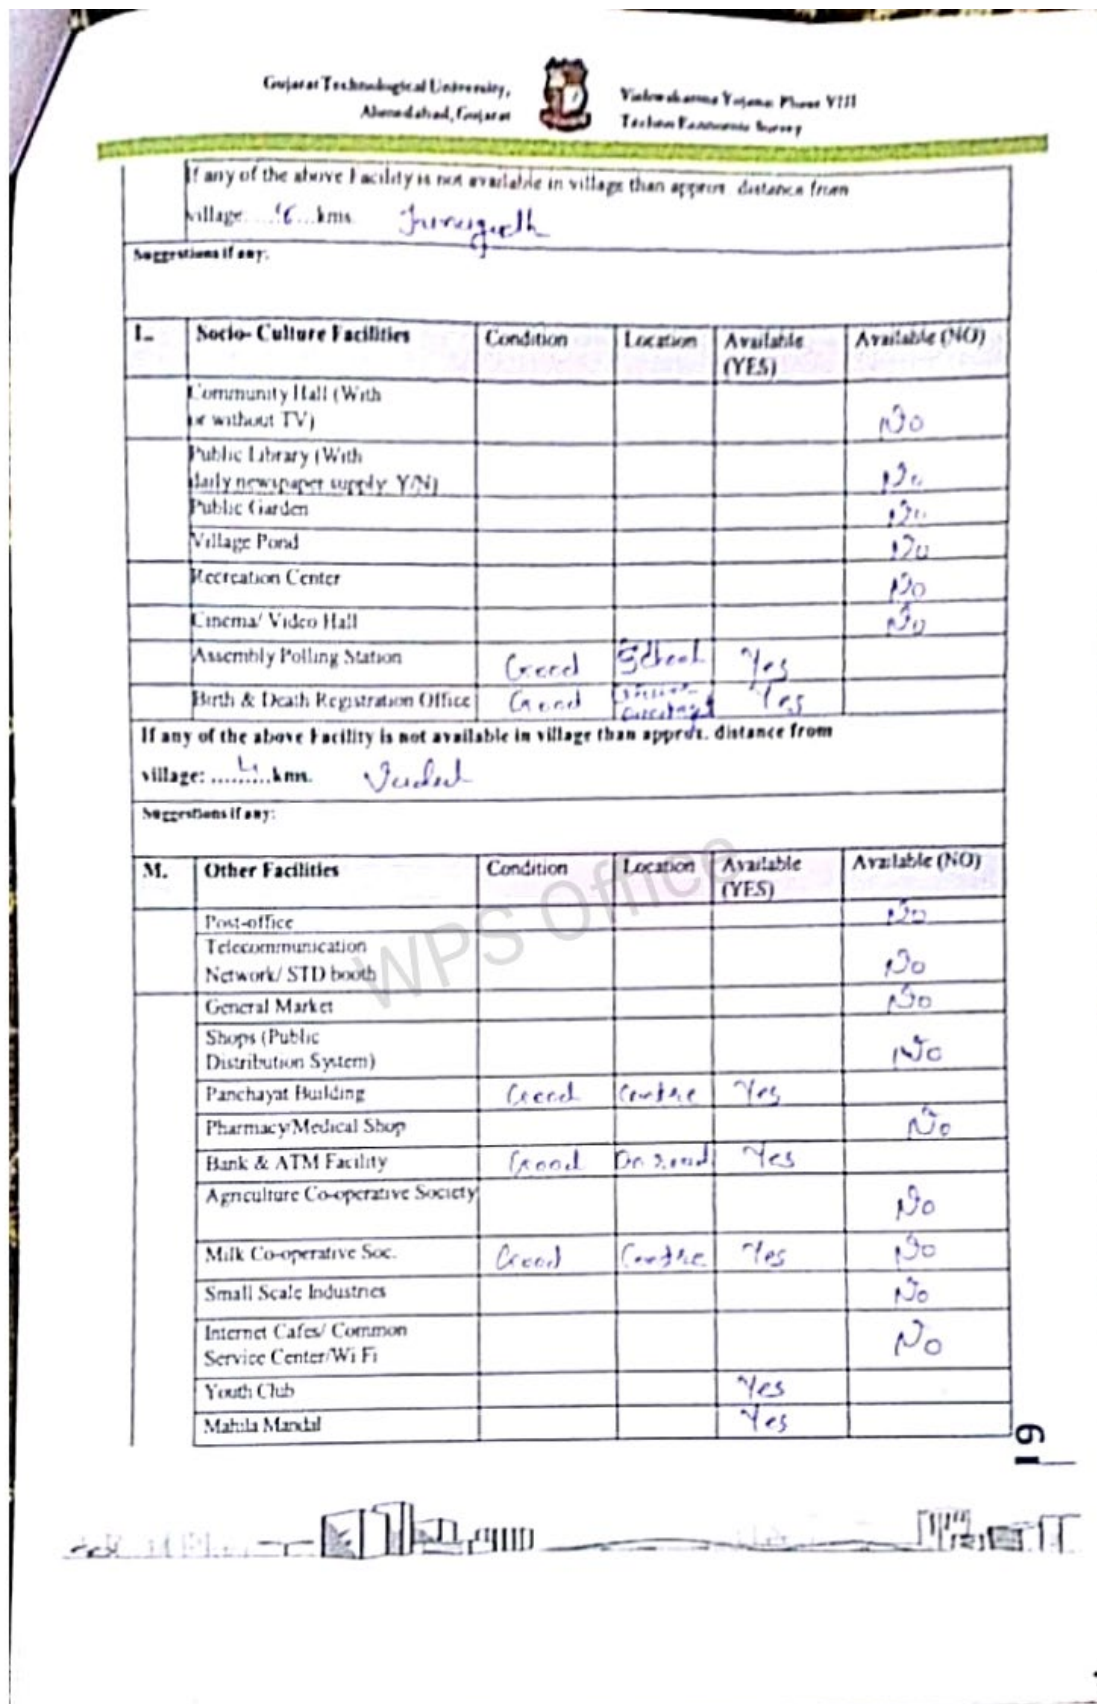 Gujarat Technological University,
Ahmedabad, Gujarat
Vishwakarma Yojana: Phase VIII
Techno Economic Survey
If any of the above Facility is not available in village than approx. distance from
village: ........kms. Junagadh
Suggestions if any:
L. Socio- Culture Facilities Condition Location Available (YES) Available (NO)
Community Hall (With
or without TV) No
Public Library (With
daily newspaper supply: Y/N) No
Public Garden No
Village Pond No
Recreation Center No
Cinema/ Video Hall No
Assembly Polling Station Good School Yes
Birth & Death Registration Office Good Yes
If any of the above Facility is not available in village than approx. distance from
village: ....4....kms.
Suggestions if any:
M. Other Facilities Condition Location Available (YES) Available (NO)
Post-office No
Telecommunication
Network/ STD booth No
General Market No
Shops (Public
Distribution System) No
Panchayat Building Good Centre Yes
Pharmacy/Medical Shop No
Bank & ATM Facility Good On road Yes
Agriculture Co-operative Society No
Milk Co-operative Soc. Good Centre Yes No
Small Scale Industries No
Internet Cafes/ Common
Service Center/Wi Fi No
Youth Club Yes
Mahila Mandal Yes
19
WPS Office